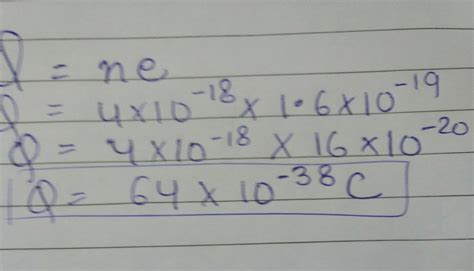 Q = ne
Q = 4×10⁻¹⁸ × 1.6×10⁻¹⁹
Q = 4×10⁻¹⁸ × 16×10⁻²⁰
Q = 64 × 10⁻³⁸ C